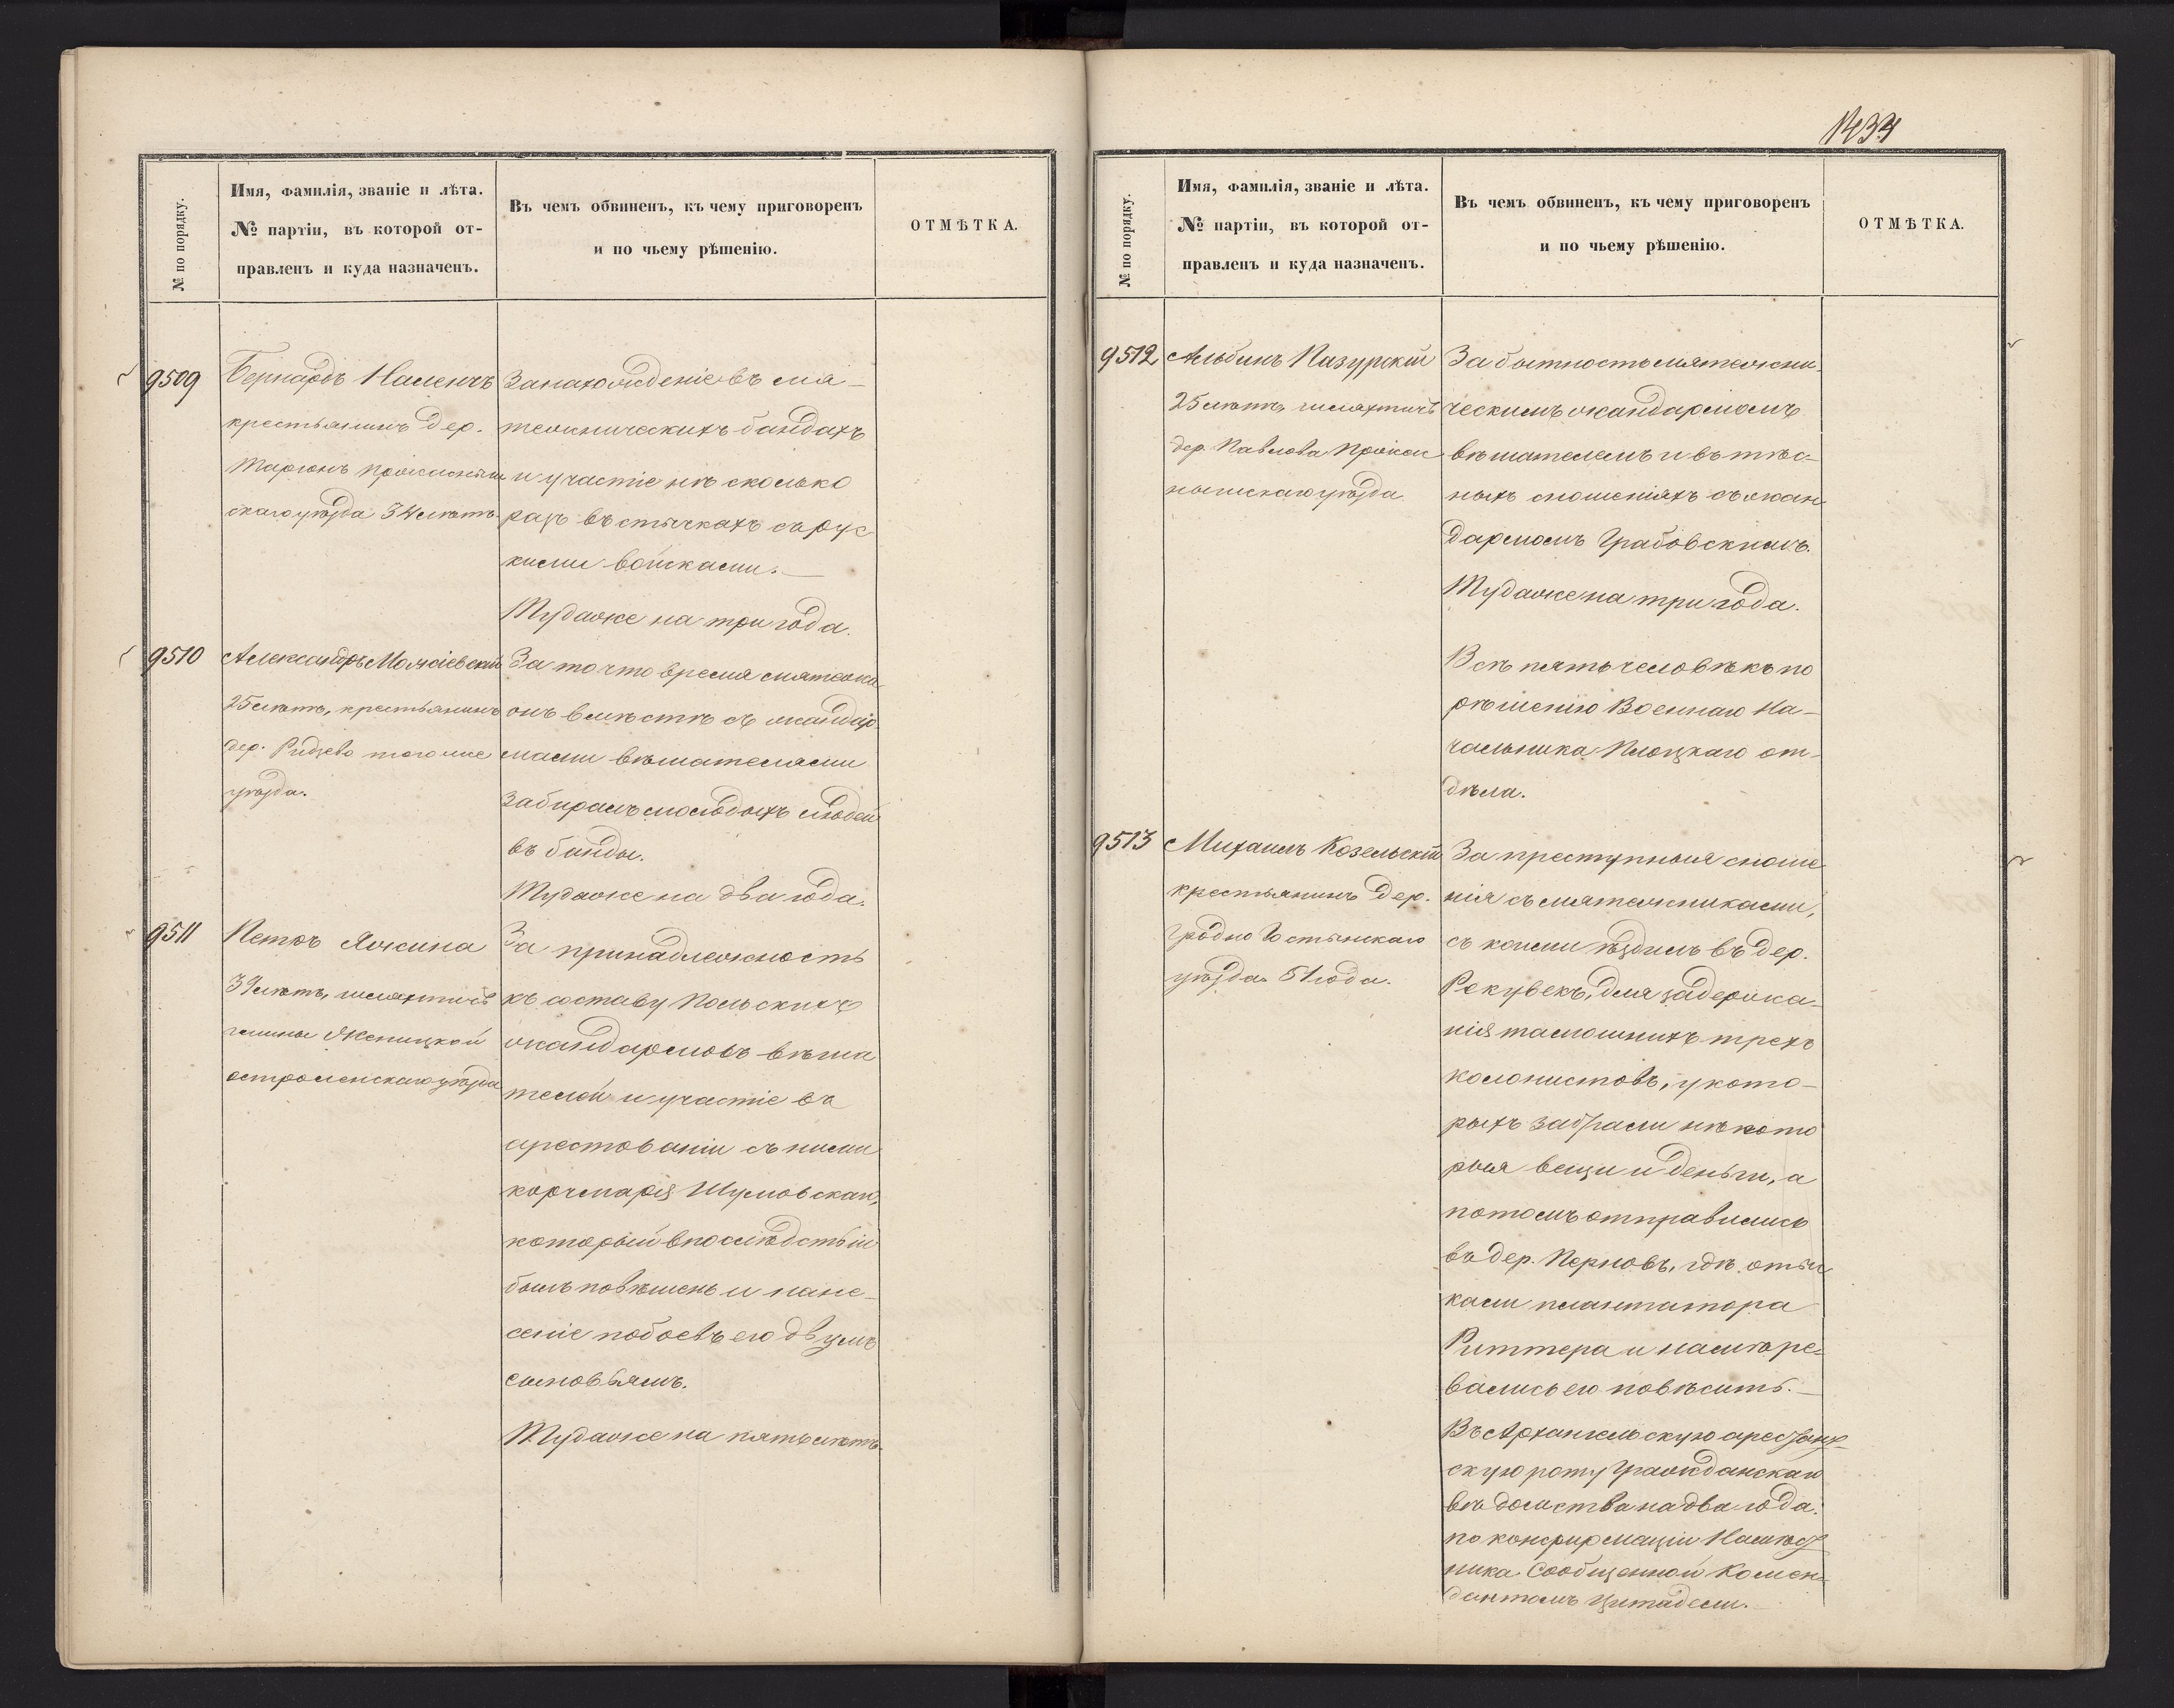 № по порядку.
Имя, фамилія, званіе и лѣта.
№ партіи, въ которой от-
правленъ и куда назначенъ.
Въ чемъ обвиненъ, къ чему приговоренъ
и по чьему рѣшенію.
ОТМѢТКА.
9509
Бернардъ Наленчъ
крестьянинъ дер.
Прасныш
скаго уѣзда 34 лѣтъ.
За нахожденіе въ мя-
тежническихъ бандахъ
и участіе нѣсколько
разъ въ стычкахъ съ рус
кими войсками.
Туда же на три года.
9510
Александръ
25 лѣтъ, крестьянинъ
дер. того же
уѣзда.
За то что время мятежа
онъ вмѣстѣ съ жандар
мами вѣшателями
забиралъ молодыхъ людей
въ банды.
Туда же на два года.
9511
Петръ Яжина
39 лѣтъ, шляхтичъ
гмины
остроленскаго уѣзда
За принадлежность
къ составу Польскихъ
жандармовъ вѣша
телей и участіе въ
арестованіи съ ними
корчмаря
который впослѣдствіи
былъ повѣшенъ и нане-
сеніе побоевъ его двумъ
сыновьямъ.
Туда же на пять лѣтъ.
1434
№ по порядку.
Имя, фамилія, званіе и лѣта.
№ партіи, въ которой от-
правленъ и куда назначенъ.
Въ чемъ обвиненъ, къ чему приговоренъ
и по чьему рѣшенію.
ОТМѢТКА.
9512
Альбинъ Пазурскій
25 лѣтъ, шляхтичъ
дер. Павлова Прas
нышскаго уѣзда
За бытность мятежни-
ческимъ жандармомъ
вѣшателемъ и въ тѣс-
ныхъ сношеніяхъ съ жан
дармомъ Грабовскимъ.
Туда же на три года.
Всѣ пять человѣкъ по
рѣшенію Военнаго На-
чальника Плоцкаго от-
дѣла.
9513
Михаилъ Козельскій
крестьянинъ дер.
Гродно Гостынскаго
уѣзда 51 года.
За преступныя сноше
нія съ мятежниками,
съ коими ѣздилъ въ дер.
Рекувекъ, для задержа-
нія тамошнихъ трехъ
колонистовъ, у кото-
рыхъ забрали нѣкото
рыя вещи и деньги, а
потомъ отправились
въ дер. Перновъ, гдѣ отыс
кали плантатора
Риттера и намѣре-
вались его повѣсить.
Въ Архангельскую арестант-
скую роту Гражданскаго
вѣдомства на два года.
по конфирмаціи Намѣст
ника сообщенной Комен-
дантомъ Цитадели.